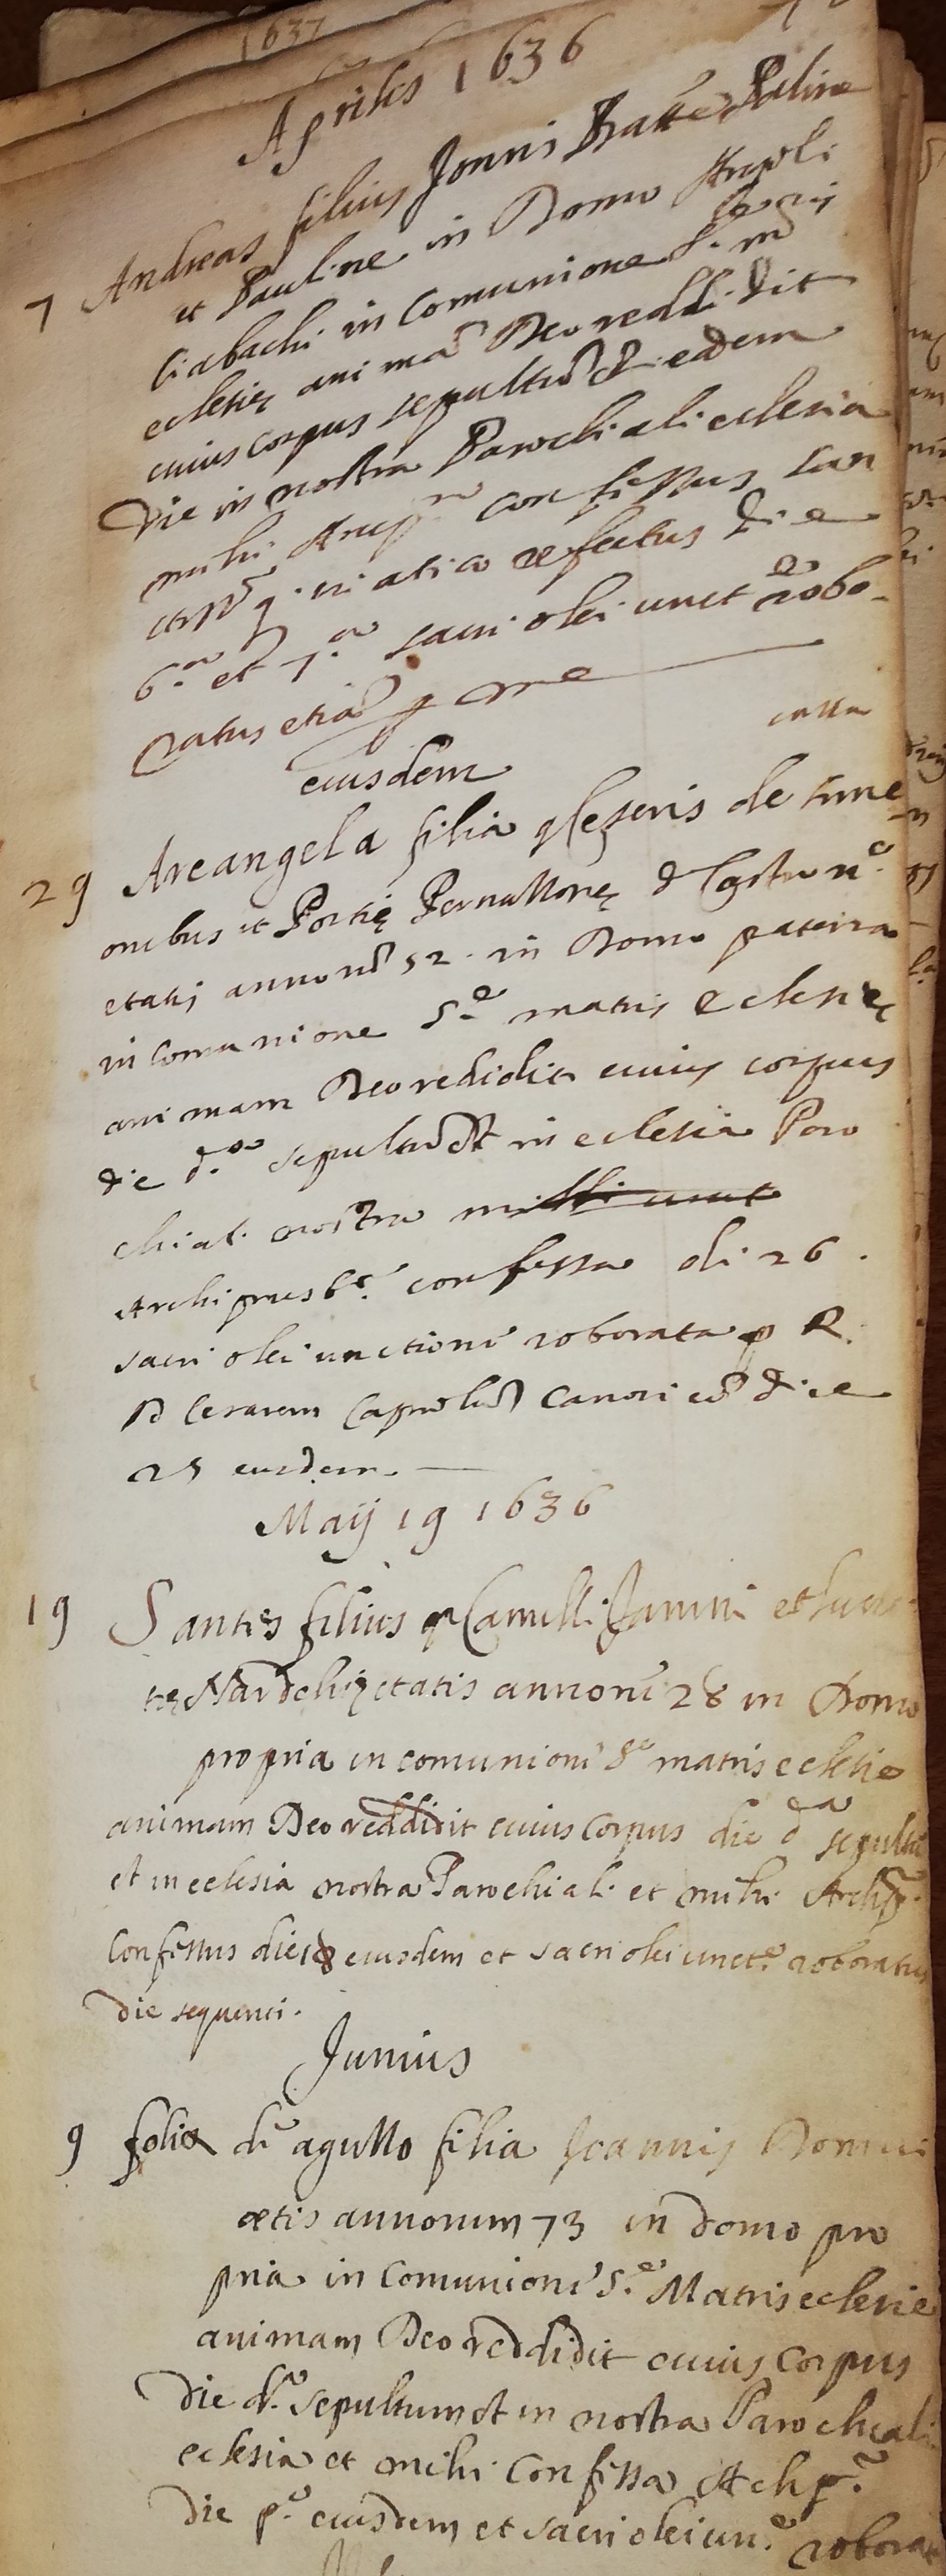 1637
Aprilis 1636
7 Andreas filius Joannis Batte
et Pauline in Domo Angeli
in Comunione S. m
eclesie animã Deo reddidit
cuius corpus sepultũ est eadem
Die in nostra Parochiali eclesia
mihi confessus san
viatico refectus die
6.a et 7.a sacri olei unct robo-
ratus etiã p me
eiusdem
29 Arcangela filia q Cesaris de
onibus et Portię d
etatis annorũ 52. in Domo paterna
in Comunione S.e matris eclesię
animam Deo redidit cuius corpus
die d.a sepultũ est in eclesia Paro
chiali nostra
Archipresb.r confessa di 26.
sacri olei unctione roborata p R.
D Cesarem canonicũ die
25 eusdem.
Maij 19 1636
19 Santes filius q Camilli et Lucre
tię etatis annorũ 28 in Domo
propria in comunione S.e matris eclesie
animam Deo reddidit cuius corpus die d.a sepultũ
et in eclesia nostra Parochiali et mihi Archp.
Confessus die 18 eiusdem et sacri olei unct.e roboratus
die sequenti.
Junius
9 filia Joannis
ætis annorum 73 in domo pro
pria in Comunione S.e Matris eclesie
animam Deo reddidit cuius Corpus
Die d.a sepultum est in nostra Parochiali
eclesia et mihi Confessa Achp.
Die p.a eiusdem et sacri olei un.e robora